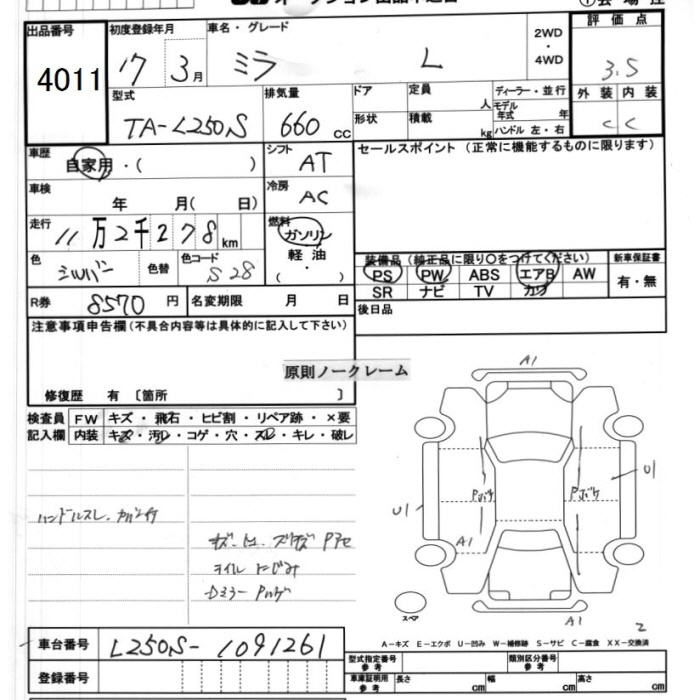 出品番号 初度登録年月 車名・グレード 2WD・4WD 評価点
4011 17 3月 ミラ L 3.5
型式 排気量 ドア 定員 人 ディーラー・並行 外装 内装
TA-L250S 660cc 形状 積載 kg モデル年式 年 ハンドル 左・右 C C
車歴 自家用・( ) シフト AT セールスポイント (正常に機能するものに限ります)
車検 年 月( 日) 冷房 AC
走行 11万2千278km 燃料 ガソリン
軽油
・
( )
色 シルバー 色替 色コード S28
装備品 (純正品に限り○をつけてください) 新車保証書
PS PW ABS エアB AW 有・無
SR ナビ TV カワ
R券 8570円 名変期限 月 日 後日品
注意事項申告欄(不具合内容等は具体的に記入して下さい)
原則ノークレーム
修復歴 有 〔箇所 〕
検査員 FW キズ・飛石・ヒビ割・リペア跡・×要
記入欄 内装 キズ・汚レ・コゲ・穴・スレ・キレ・破レ
A1
U1
Pボケ Pボケ
U1
A1
ハンドルスレ
キズ
スペア
A1
2
A-キズ E-エクボ U-凹み W-補修跡 S-サビ C-腐食 XX-交換済
車台番号 L250S-1091261
型式指定番号 参考 類別区分番号 参考
登録番号 車庫証明用 参考 長さ cm 幅 cm 高さ cm